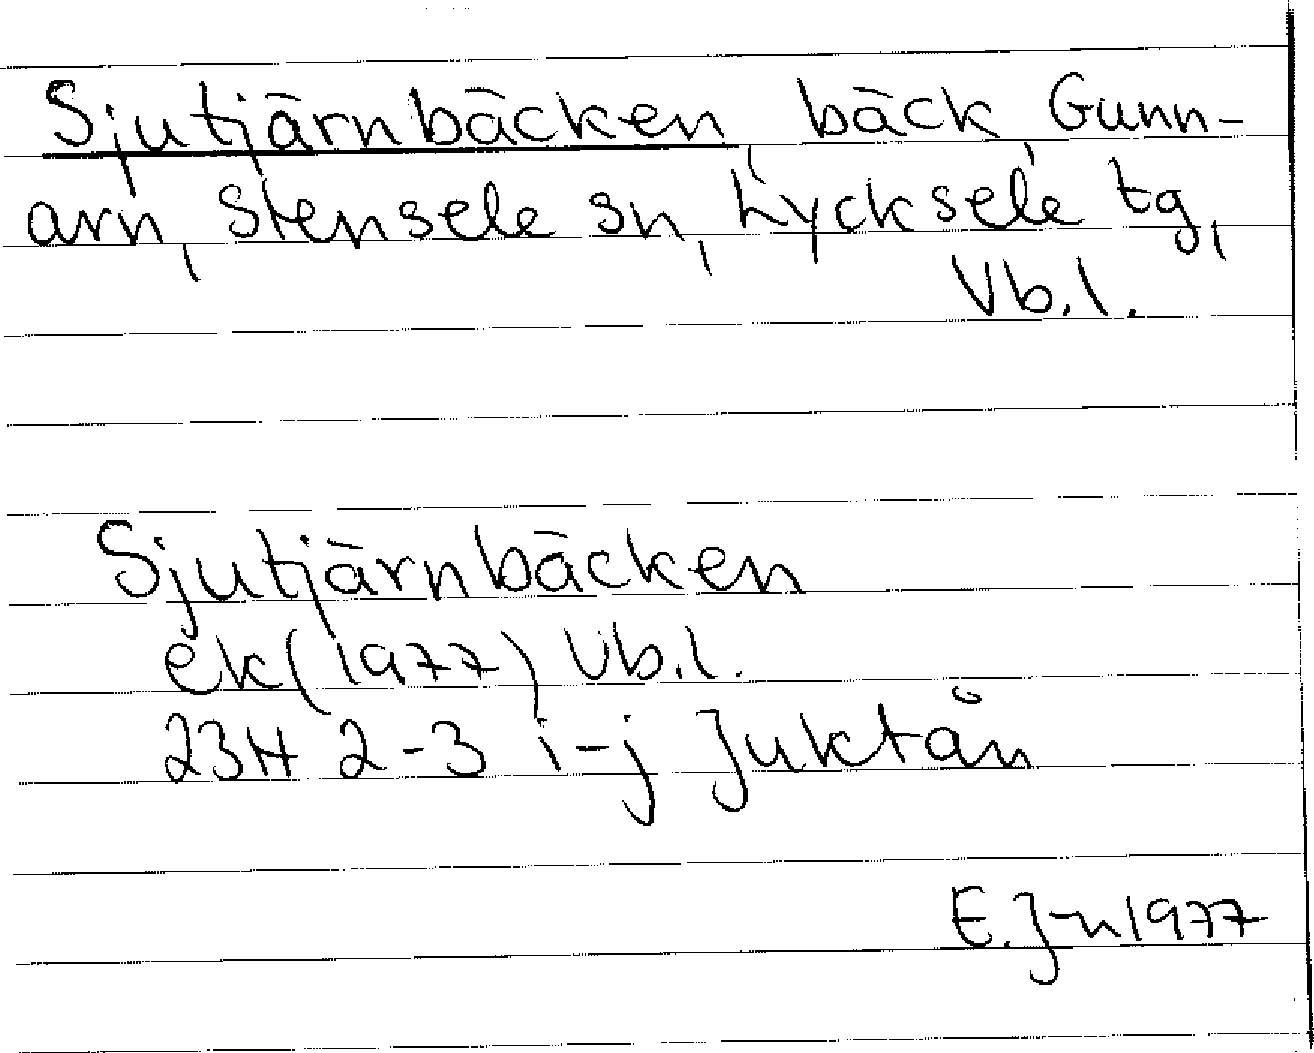 Sjutjärnbäcken bäck Gunn-
arn, Stensele sn, Lycksele tg,
Vb.l.
Sjutjärnbäcken
ek (1977) Vb.l.
23H 2-3 i-j Juktån
E. J-n 1977